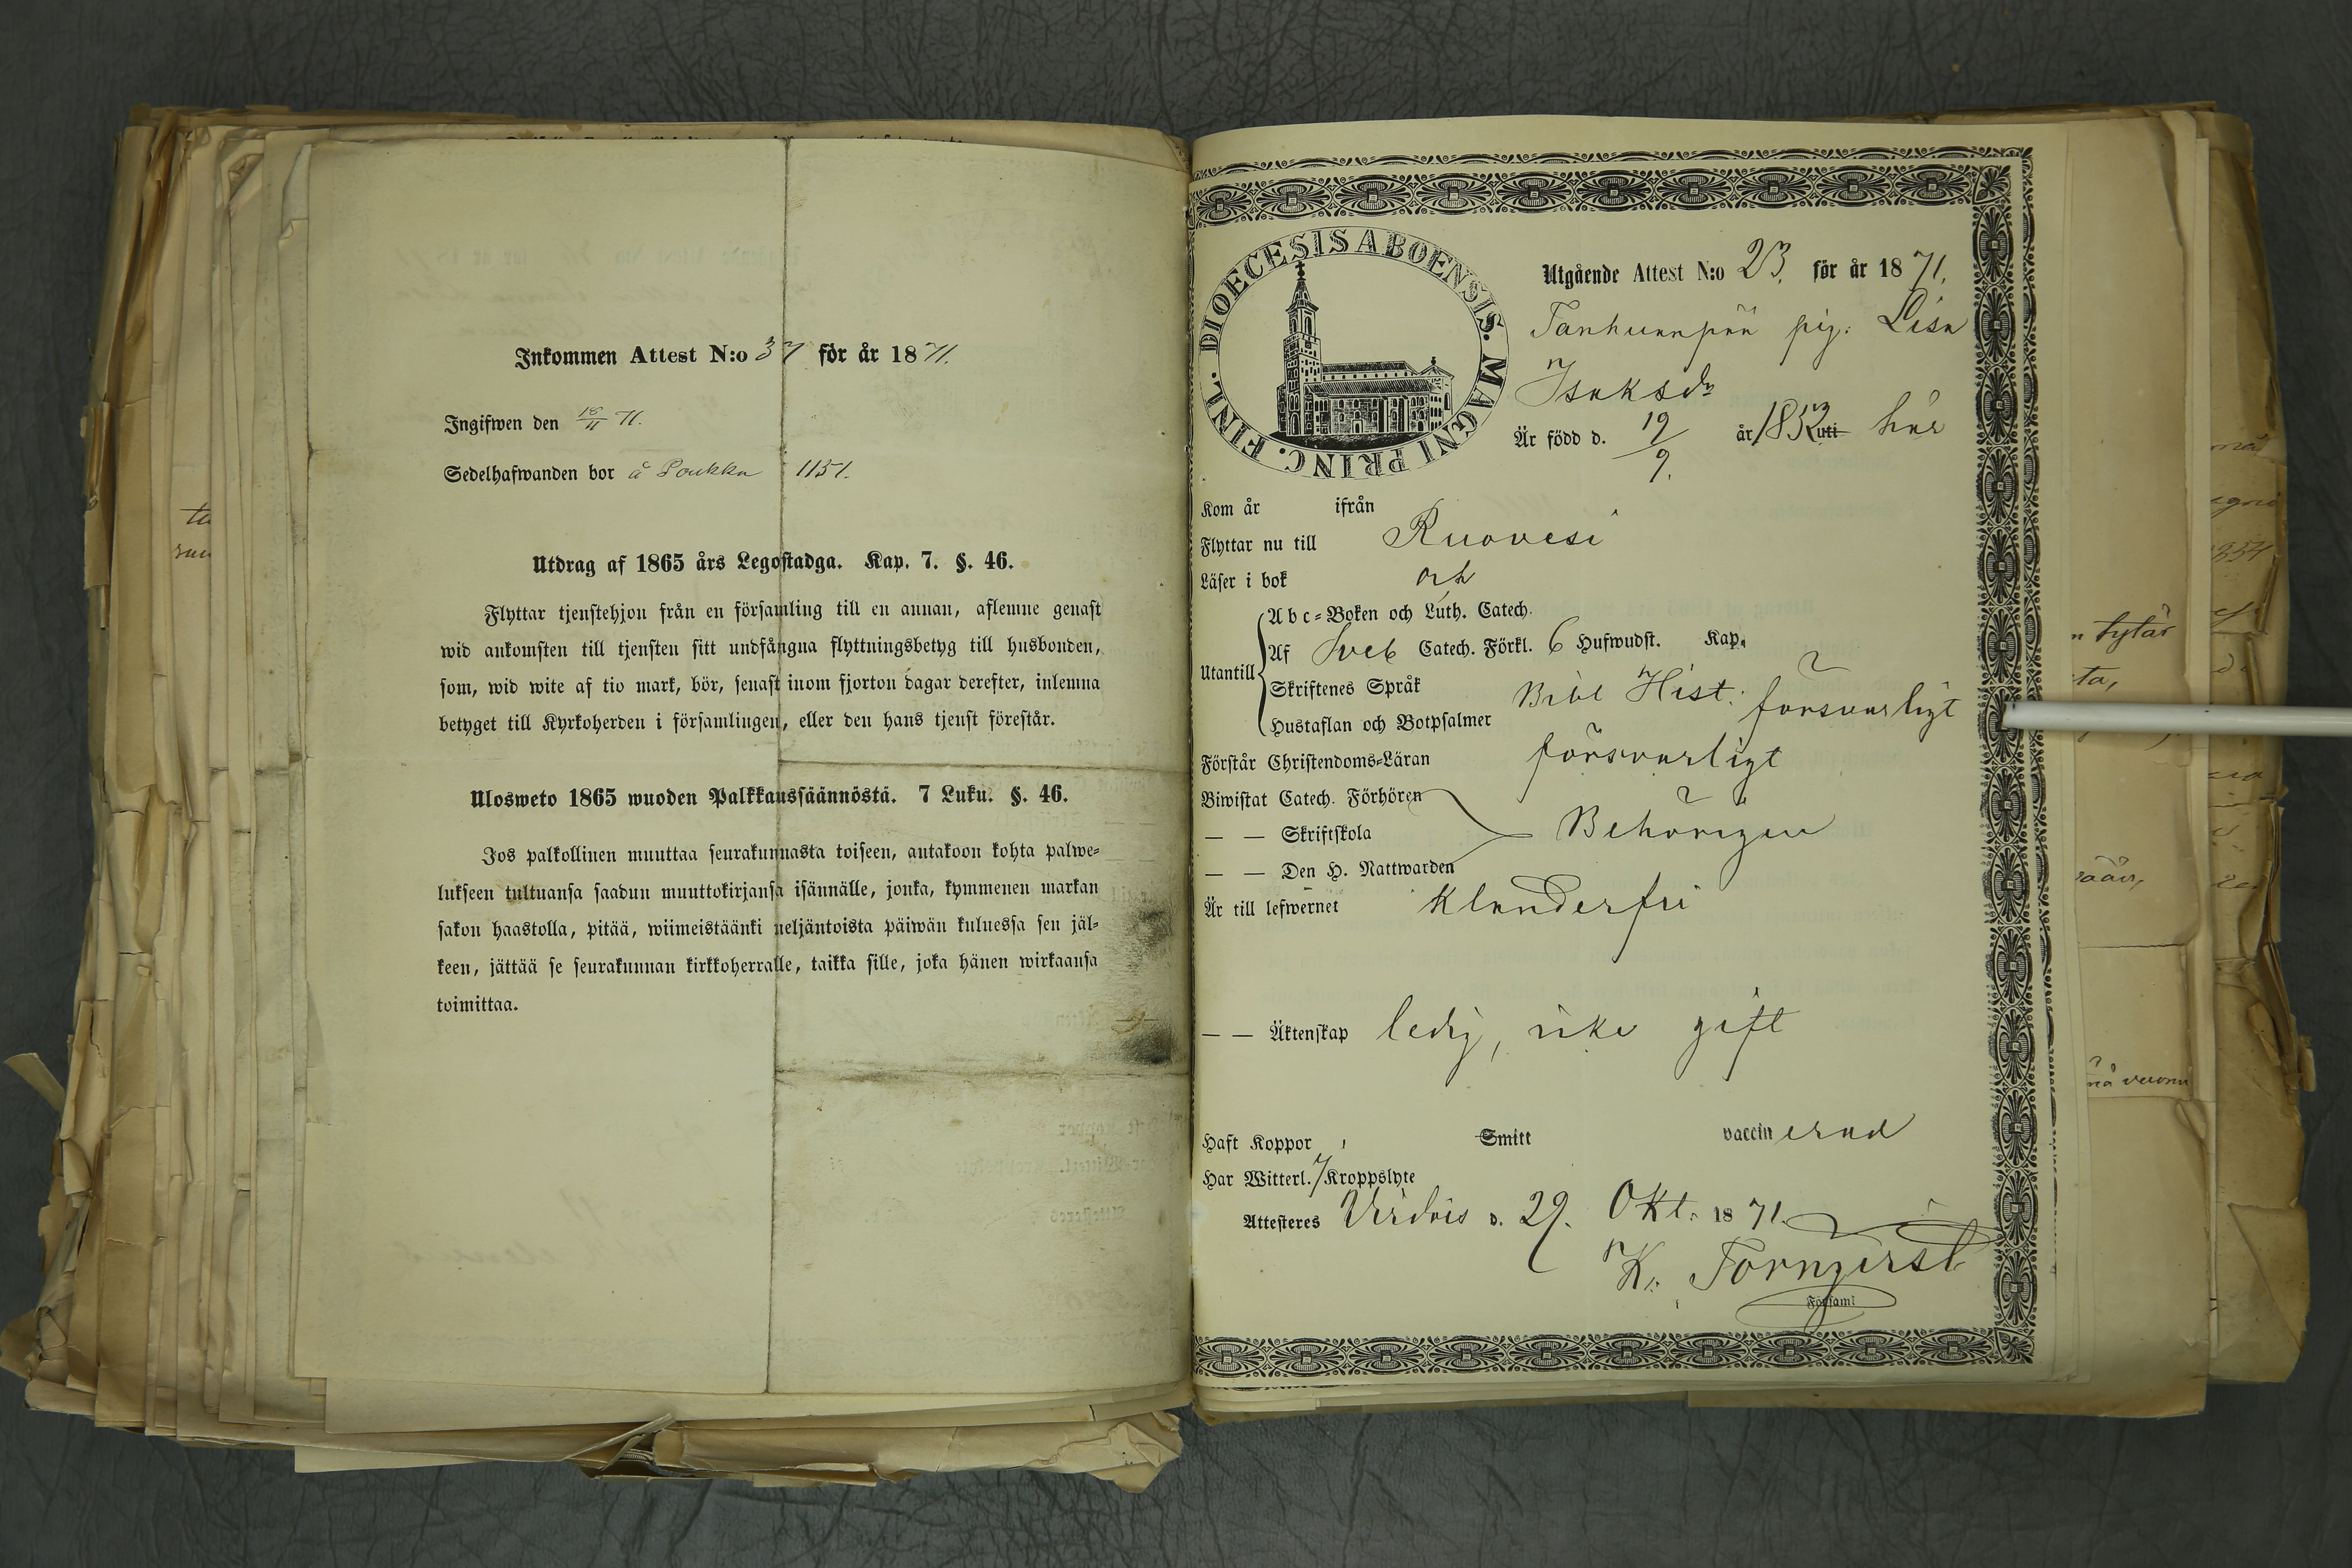 Inkommen Attest N:o 37 för år 1871.
Ingifwen den 18/11 71.
Sedelhafwanden bor å Poukka 1151.
Utdrag af 1865 års Legostadga. Kap. 7. §. 46.
Flyttar tjenstehjon från en församling till en annan, aflemne genast
wid ankomsten till tjensten sitt undfångna flyttningsbetyg till husbonden,
som, wid wite af tio mark, bör, senast inom fjorton dagar derefter, inlemna
betyget till Kyrkoherden i församlingen, eller den hans tjenst förestår.
Ulosweto 1865 wuoden Palkkaussäännöstä. 7 Luku. §. 46.
Jos palkollinen muuttaa seurakunnasta toiseen, antakoon kohta palwe-
lukseen tultuansa saadun muuttokirjansa isännälle, jonka, kymmenen markan
sakon haastolla, pitää, wiimeistäänki neljäntoista päiwän kuluessa sen jäl-
keen, jättää se seurakunnan kirkkoherralle, taikka sille, joka hänen wirkaansa
toimittaa.
DIOECESIS ABOENSIS. MAGNI PRINC. FINL.
Utgående Attest N:o 23. för år 1871.
Tanhuanpää pig: Lisa
Isaksdr
Är född d. 19/9. år 1853 uti här
Kom år ifrån
Flyttar nu till Ruovesi
Läser i bok och
Abc-Boken och Luth. Catech.
Utantill
Af Sveb Catech. Förkl. 6 Hufwudst. Kap.
Skriftenes Språk
Bibl Hist: försvarligt
Hustaflan och Botpsalmer
Förstår Christendoms-Läran försvarligt
Biwistat Catech. Förhören
— — Skriftskola Behörigen
— — Den H. Nattwarden
Är till lefwernet Klanderfri
— — Äktenskap ledig, icke gift
Haft Koppor Smitt vaccinerad
Har Witterl. Kroppslyte
Attesteres Virdois d. 29. Okt. 1871.
K. Forngerst
Församl